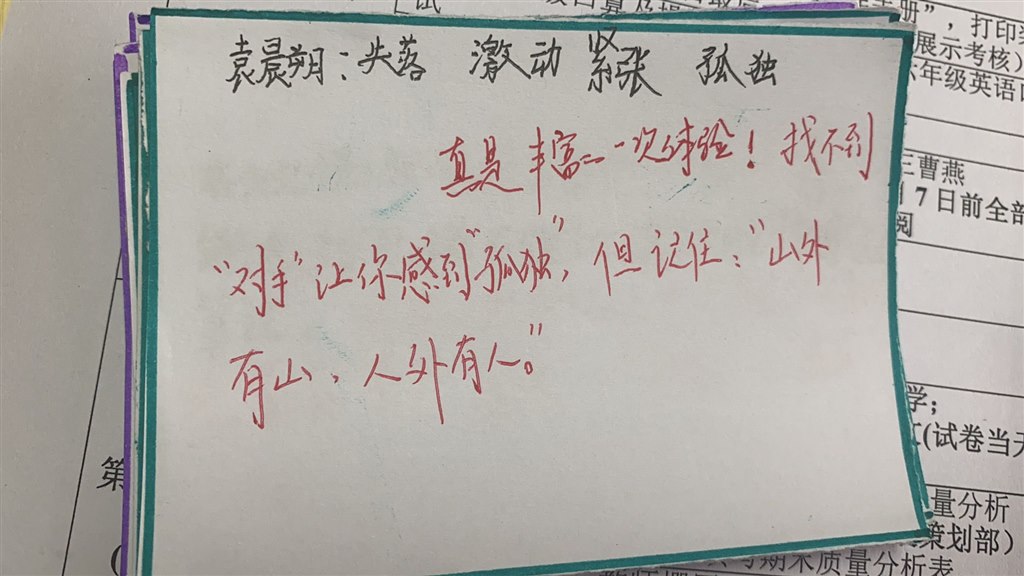 袁晨朔：失落 激动 紧张 孤独
真是丰富的一次体验！找不到
“对手”让你感到“孤独”，但记住：“山外
有山，人外有人。”
册”，打印
展示考核）
六年级英语口
王曹燕
月7日前全部
阅
学；
（试卷当天
量分析
策划部）
期末质量分析表
第